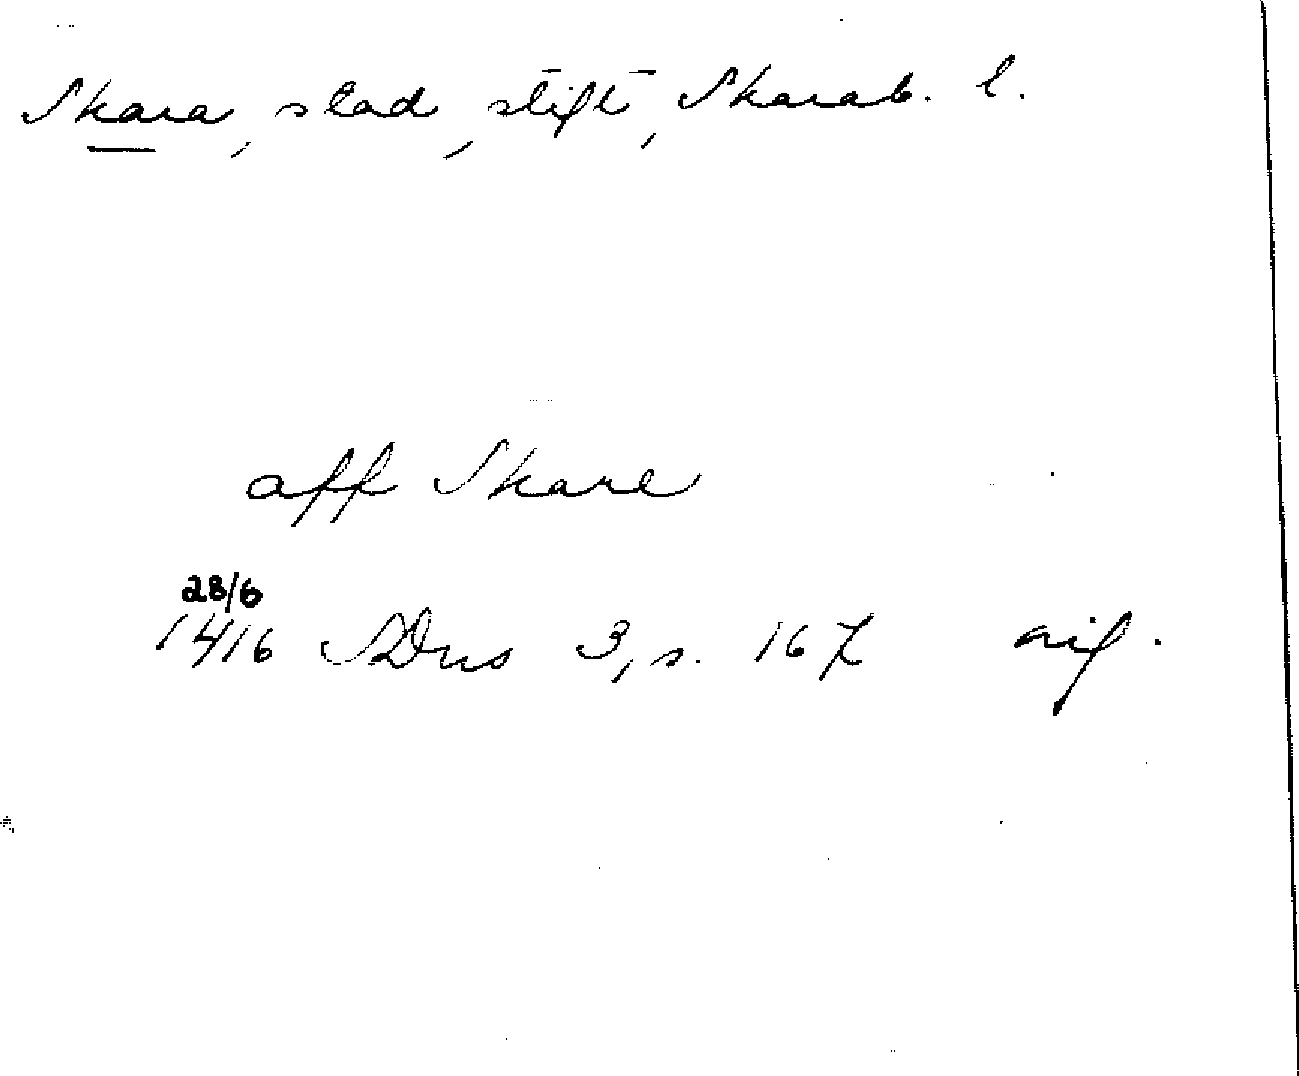 Skara, stad, stift, Skarab. l.
aff Skare
28/6
1416 SDns 3, s. 167 avf.